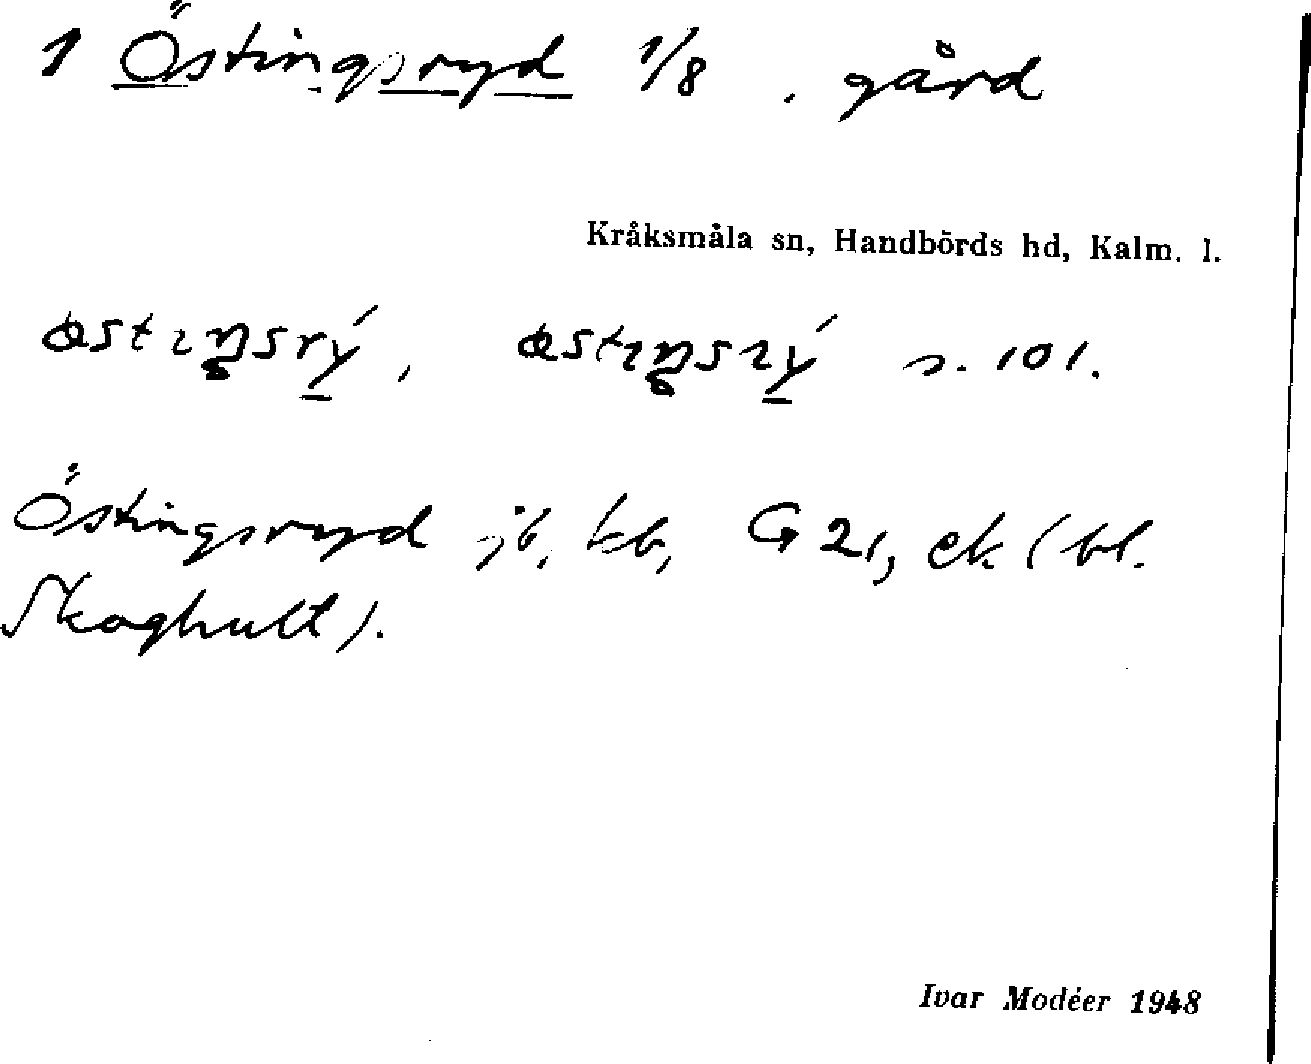 1 Östingsryd 1/8 . gård
Kråksmåla sn, Handbörds hd, Kalm. l.
s. 101.
Östingsryd jb, kb, G 21, ek. (bl.
Skoghult).
Ivar Modéer 1948